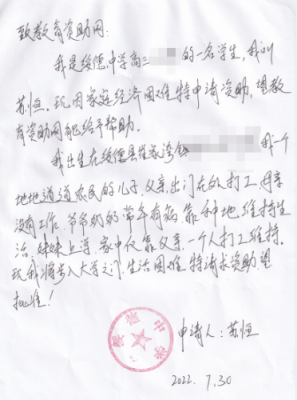 致教育资助网：
我是绥德中学高三 的一名学生，我叫
苏恒。现因家庭经济困难，特申请资助，望教
育资助网能给予帮助。
我出生在绥德县 我一个
地地道道农民的儿子，父亲出门在外打工，母亲
没有工作，爷爷奶奶常年有病，靠种地维持生
活，妹妹上学，家中仅靠父亲一个人打工维持。
现我将步入大学之门，生活困难，特请求资助，望
批准！
申请人：苏恒
2022.7.30